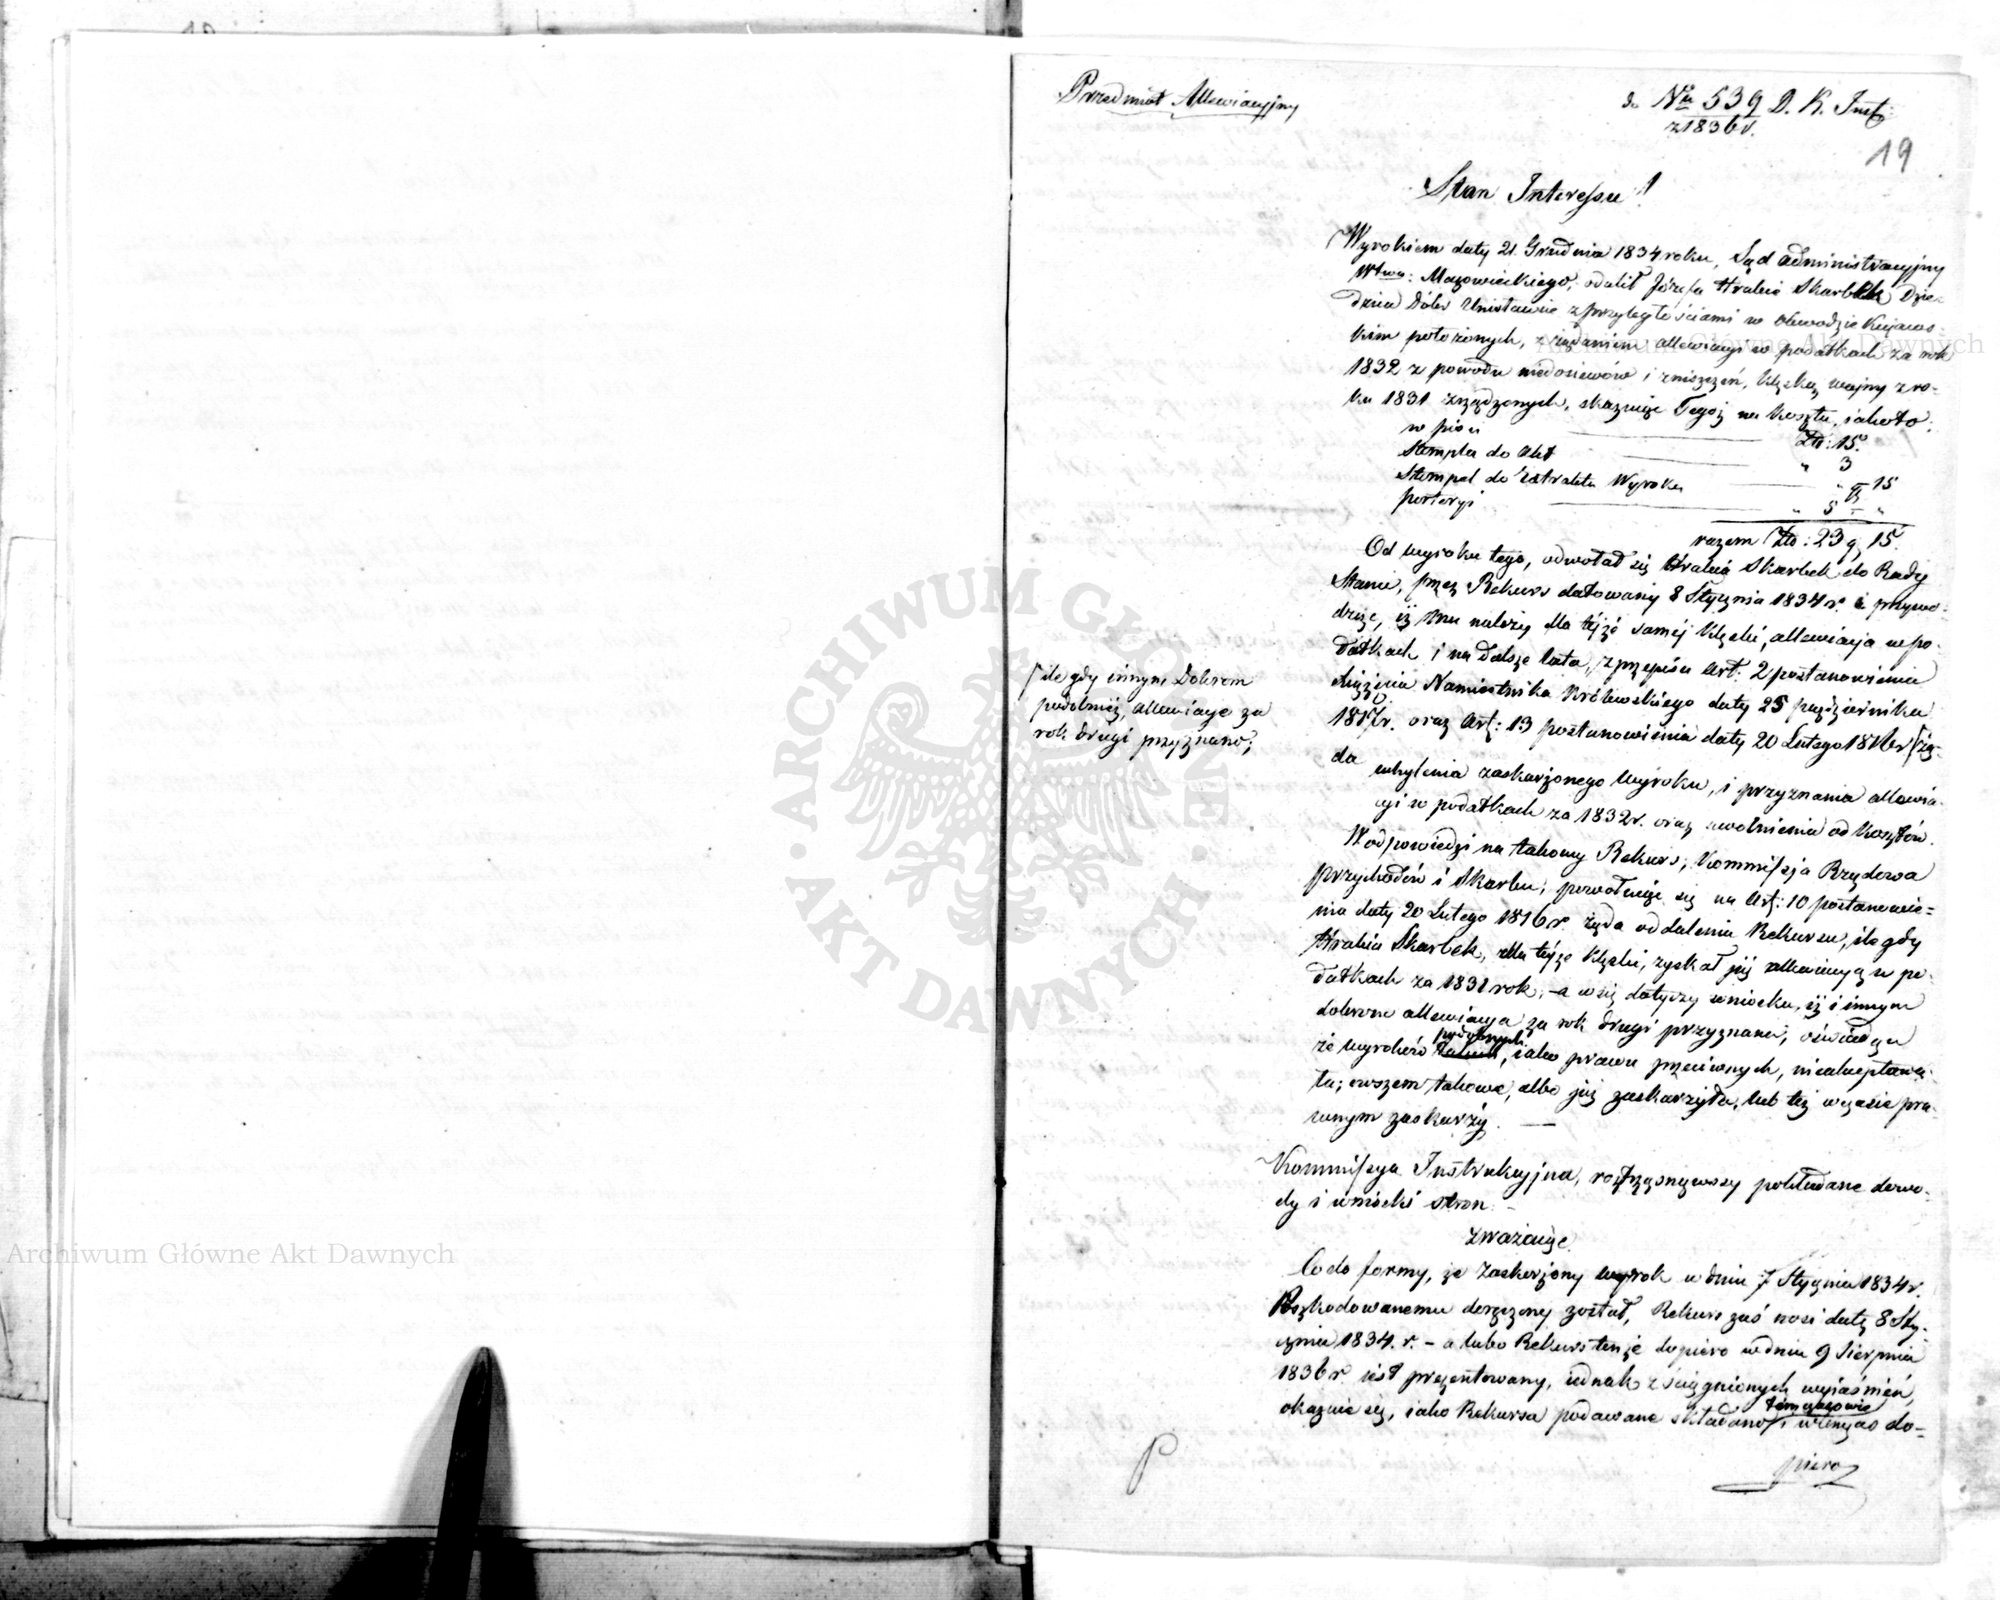 Przedmiot Allewiacyjny
do Nru 539 D. K. Inst:
z 1836 r.
19
Stan Interessu!
Wyrokiem daty 21. Grudnia 1834 roku, Sąd administracyjny
Wtwa: Mazowieckiego, odalił Józefa Hrabię Skarbek Dzie-
dzica Dóbr Unisławie z przyległościami w Obwodzie Kujaws-
kim położonych, z żądaniem allewiacyi w podatkach za rok
1832 z powodu niedosiewów i zniszczeń, klęską wojny z ro-
ku 1831 zrządzonych, skazując Tegoż na koszta, iakoto:
wpisu Złt: 15.
Stempla do akt " 3
Stempel do extraktu Wyroku " 15
portoryi " 5 "
razem Złt: 23 g 15.
Od wyroku tego, odwołał się Hrabia Skarbek do Rady
Stanu, przez Rekurs datowany 8 Stycznia 1834 r. i przywo-
dząc, iż mu należy dla tejże saméj klęski, allewiacja w po-
datkach i na dalsze lata, z przepisu Art: 2 postanowienia
Xiążęcia Namiestnika Królewskiego daty 25 października
1817 r. oraz Art: 13 postanowienia daty 20 Lutego 1816 r żą-
da
uchylenia zaskarżonego wyroku, i przyznania allewia-
cyi w podatkach za 1832 r. oraz uwolnienia od kosztów.
ile gdy innym Dobrom
podobnież, allewiacye za
rok drugi przyznano;
W odpowiedzi na takowy Rekurs, Kommissja Rządowa
Przychodów i Skarbu, powołując się na Art: 10 postanowie=
nia daty 20 Lutego 1816 r. żąda oddalenia Rekursu, ile gdy
Hrabia Skarbek, dla tejże klęski, zyskał już allewiacyą w po-
datkach za 1831 rok; - a co się dotyczy wniosku, iż i innym
dobrom allewiacya za rok drugi przyznana, oświadcza
że wyroków podobnych, iako prawu przeciwnych, nieakceptowa-
ła; owszem takowe, albo już zaskarżyła, lub też w czasie pra-
wnym zaskarży. —
Kommissya Instrukcyjna, roztrząsnąwszy pokładane dowo-
dy i wnioski stron. -
zważając
Co do formy, że zaskarżony wyrok w dniu 7 Stycznia 1834 r.
Poszkodowanemu doręczony został, Rekurs zaś nosi datę 8 Sty-
cznia 1834. r. - a lubo Rekurs tenże dopiero w dniu 9 Sierpnia
1836 r. iest prezentowany, iednak z ściągnionych wyiaśnień,
okazuie się, iako Rekursa podawane składano tymczasowie i wówczas do=
piero
P
Archiwum Główne Akt Dawnych
Archiwum Główne Akt Dawnych
ARCHIWUM GŁÓWNE
AKT DAWNYCH